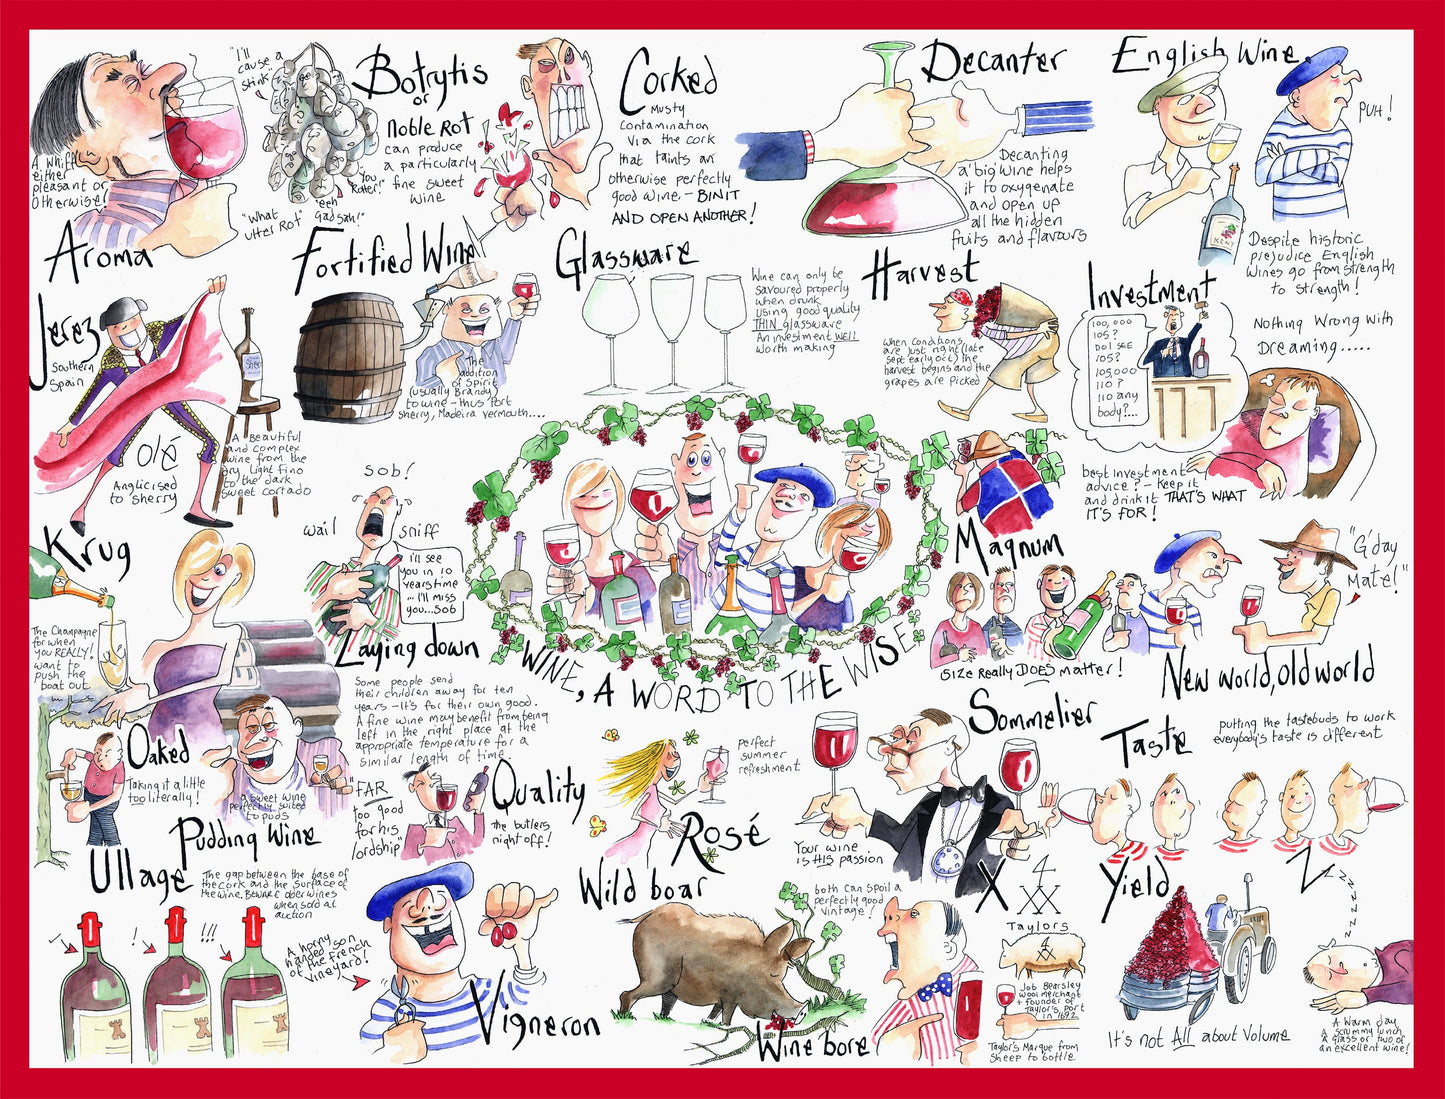 A whiff
either
pleasant or
otherwise!
Aroma
"I'll
cause a
stink"
"What
utter Rot"
"eeh
Gad sah!"
"You
Rotter!"
Botrytis
or
Noble Rot
can produce
a particularly
fine sweet
wine
Corked
Musty
Contamination
via the cork
that taints an
otherwise perfectly
good wine - BIN IT
AND OPEN ANOTHER!
Decanter
Decanting
a 'big' wine helps
it to oxygenate
and open up
all the hidden
fruits and flavours
English Wine
PUH!
KENT
Despite historic
prejudice English
Wines go from strength
to strength!
Jerez
Southern
Spain
Olé
Anglicised
to sherry
A Beautiful
and complex
wine from the
dry, light fino
to the dark
sweet cortado
Fortified Wine
The
addition
of Spirit
(usually Brandy)
to wine - thus Port
Sherry, Madeira Vermouth....
Glassware
Wine can only be
savoured properly
when drunk
using good quality
THIN glassware
An investment WELL
worth making
Harvest
When conditions
are just right (late
Sept early Oct) the
harvest begins and the
grapes are picked
Investment
100,000
105?
Do I see
105?
105,000
110?
110 any
body?...
Nothing Wrong with
Dreaming.....
best investment
advice? - Keep it
and drink it THAT'S WHAT
IT'S FOR!
Krug
The Champagne
for when
you REALLY!
want to
push the
boat out
sob!
wail
sniff
I'll see
you in 10
years time
... I'll miss
you...Sob
Laying down
Some people send
their children away for ten
years - it's for their own good.
A fine wine may benefit from being
left in the right place at the
appropriate temperature for a
similar length of time.
WINE, A WORD TO THE WISE.
Magnum
Size Really DOES matter!
"G'day
Mate!"
New world, old world
Oaked
Taking it a little
too literally!
a sweet wine
perfectly suited
to puds
Pudding Wine
"FAR
too good
for his
lordship"
Quality
The butlers
night off!
Perfect
summer
refreshment
Rosé
Sommelier
Your wine
is HIS passion
Taste
putting the tastebuds to work
everybody's taste is different
Ullage
The gap between the base of
the cork and the surface of
the wine. BEWARE older wines
when sold at
auction
!
!!!
A horny
handed son
of the French
vineyard!
Vigneron
Wild boar
both can spoil a
perfectly good
vintage!
Wine bore
X
4
XX
Taylors
4
XX
Job Bearsley
wool merchant
+ founder of
Taylor's Port
in 1692
Taylor's Marque from
sheep to bottle
Yield
It's not All about Volume
Z
zzzzzzz
A warm day
a scrummy lunch
a glass or two of
an excellent wine!